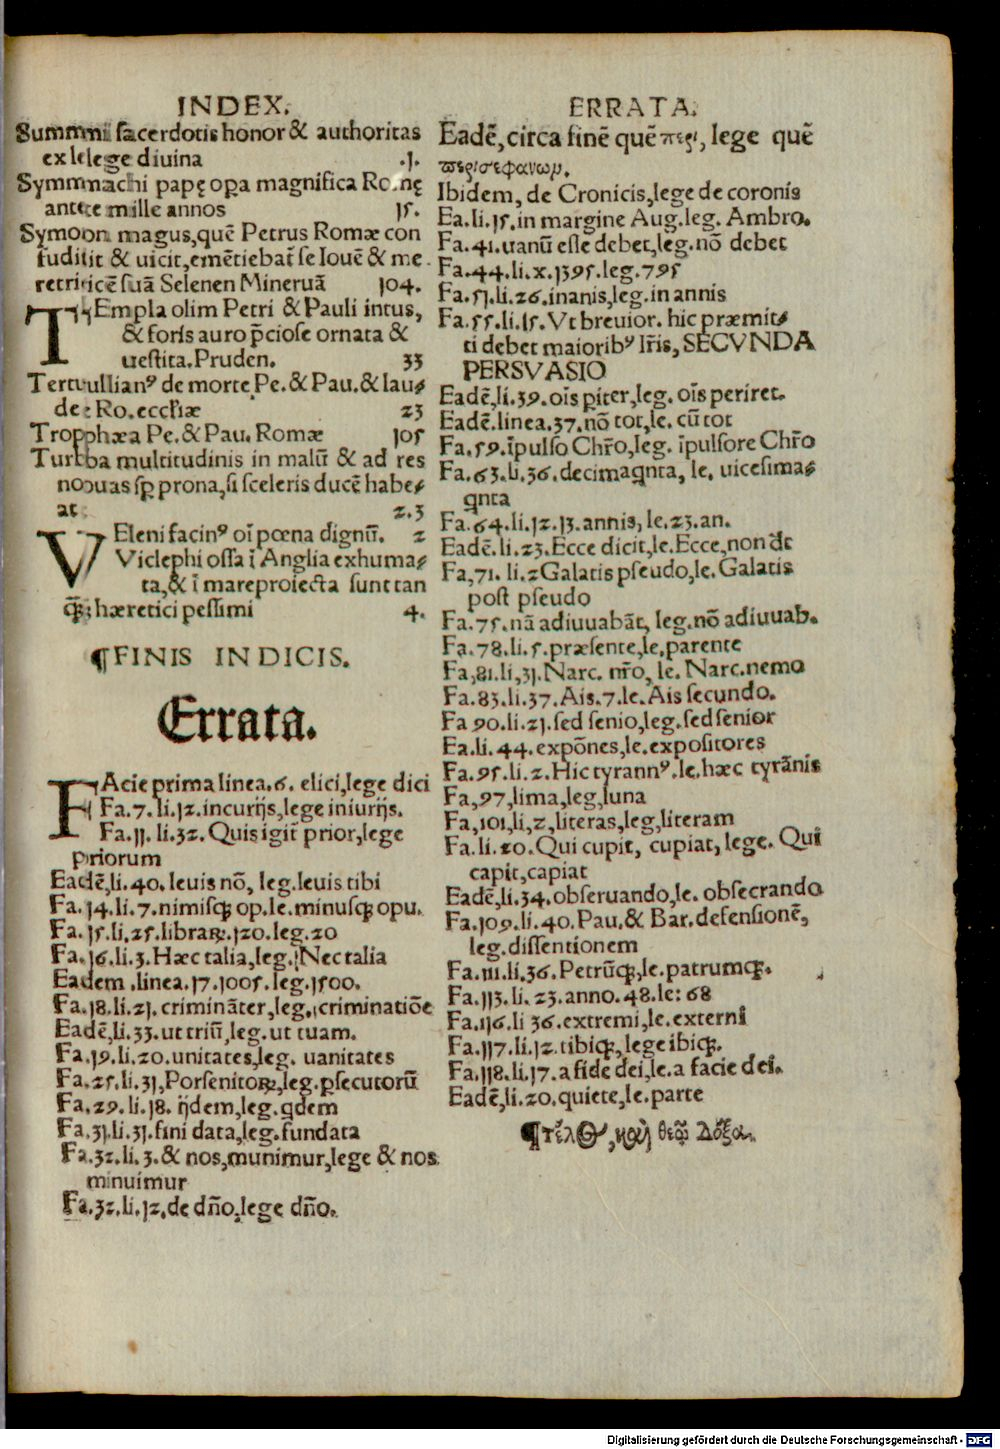 INDEX.
Summi sacerdotis honor & authoritas
ex lege diuina .1.
Symmachi papę opa magnifica Romę
ante mille annos 15.
Symon magus, quē Petrus Romæ con
fudit & uicit, emētiebat̃ se Iouē & me
retricē suā Selenen Mineruā 104.
TEmpla olim Petri & Pauli intus,
& foris auro p̄ciose ornata &
uestita. Pruden. 33
Tertullianꝰ de morte Pe. & Pau. & lau⸗
de Ro. eccłiæ 23
Trophæa Pe. & Pau. Romæ 105
Turba multitudinis in malū & ad res
nouas sp prona, si sceleris ducē habe⸗
at 2.3
VEleni facinꝰ oī pœna dignū. 2
Viclephi ossa ī Anglia exhuma⸗
ta, & ī mare proiecta sunt tan
ꝙ̃ hæretici pessimi 4.
¶FINIS INDICIS.
Errata.
FAcie prima linea. 6. elici, lege dici
Fa. 7. li. 12. incurijs, lege iniurijs.
Fa. 11. li. 32. Quis igit̃ prior, lege
priorum
Eadē, li. 40. leuis nō, leg. leuis tibi
Fa. 14. li. 7. nimisꝙ op. le. minusꝙ opu.
Fa. 15. li. 25. libraꝝ. 120. leg. 20
Fa. 16. li. 3. Hæc talia, leg. Nec talia
Eadem .linea. 17. 1005. leg. 1500.
Fa. 18. li. 21. criminãter, leg. criminatiōe
Eadē, li. 33. ut triū, leg. ut tuam.
Fa. 19. li. 20. unitates, leg. uanitates
Fa. 25. li. 31, Porsenitoꝝ, leg. ꝑsecutorū
Fa. 29. li. 18. ijdem, leg. qdem
Fa. 31. li. 31. fini data, leg. fundata
Fa. 32. li. 3. & nos, munimur, lege & nos
minuimur
Fa. 32. li. 12. de dño, lege dño.
ERRATA.
Eadē, circa finē quē περι, lege quē
περισεφανωμ.
Ibidem, de Cronicis, lege de coronis
Ea. li. 15. in margine Aug. leg. Ambro.
Fa. 41. uanū esse debet, leg. nō debet
Fa. 44. li. x. 1395. leg. 795
Fa. 51. li. 26. inanis, leg. in annis
Fa. 55. li. 15. Vt breuior. hic præmit⸗
ti debet maioribꝰ lr̃is, SECVNDA
PERSVASIO
Eadē, li. 39. oīs piter, leg. oīs periret.
Eadē. linea. 37. nō tot, le. cū tot
Fa. 59. īpulso Chr̃o, leg. īpulsore Chr̃o
Fa. 63. li. 36. decimaqnta, le. uicesima⸗
qnta
Fa. 64. li. 12. 13. annis, le. 23. an.
Eadē. li. 23. Ecce dicit, le. Ecce, non d̃t
Fa, 71. li. 2 Galatis pseudo, le. Galatis
post pseudo
Fa. 75. nā adiuuabāt, leg. nō adiuuab.
Fa. 78. li. 5. præsente, le. parente
Fa, 81. li, 31. Narc. nr̃o, le. Narc. nemo
Fa. 83. li. 37. Ais. 7. le. Ais secundo.
Fa 90. li. 21. sed senio, leg. sed senior
Ea. li. 44. expōnes, le. expositores
Fa. 95. li. 2. Hic tyrannꝰ. le. hæc tyrānis
Fa, 97, lima, leg, luna
Fa, 101, li, 2, literas, leg, literam
Fa. li. 20. Qui cupit, cupiat, lege. Qui
capit, capiat
Eadē, li. 34. obseruando, le. obsecrando
Fa. 109. li. 40. Pau. & Bar. defensionē,
leg. dissentionem
Fa. 111. li. 36. Petrūꝙ, le. patrumꝙ.
Fa. 113. li. 23. anno. 48. le: 68
Fa. 116. li 36. extremi, le. externi
Fa. 117. li. 12. tibiꝙ, lege ibiꝙ.
Fa. 118. li. 17. a fide dei, le. a facie dei.
Eadē, li. 20. quiete, le. parte
¶τέλος, καὶ θεῷ Δόξα.
Digitalisierung gefördert durch die Deutsche Forschungsgemeinschaft - DFG